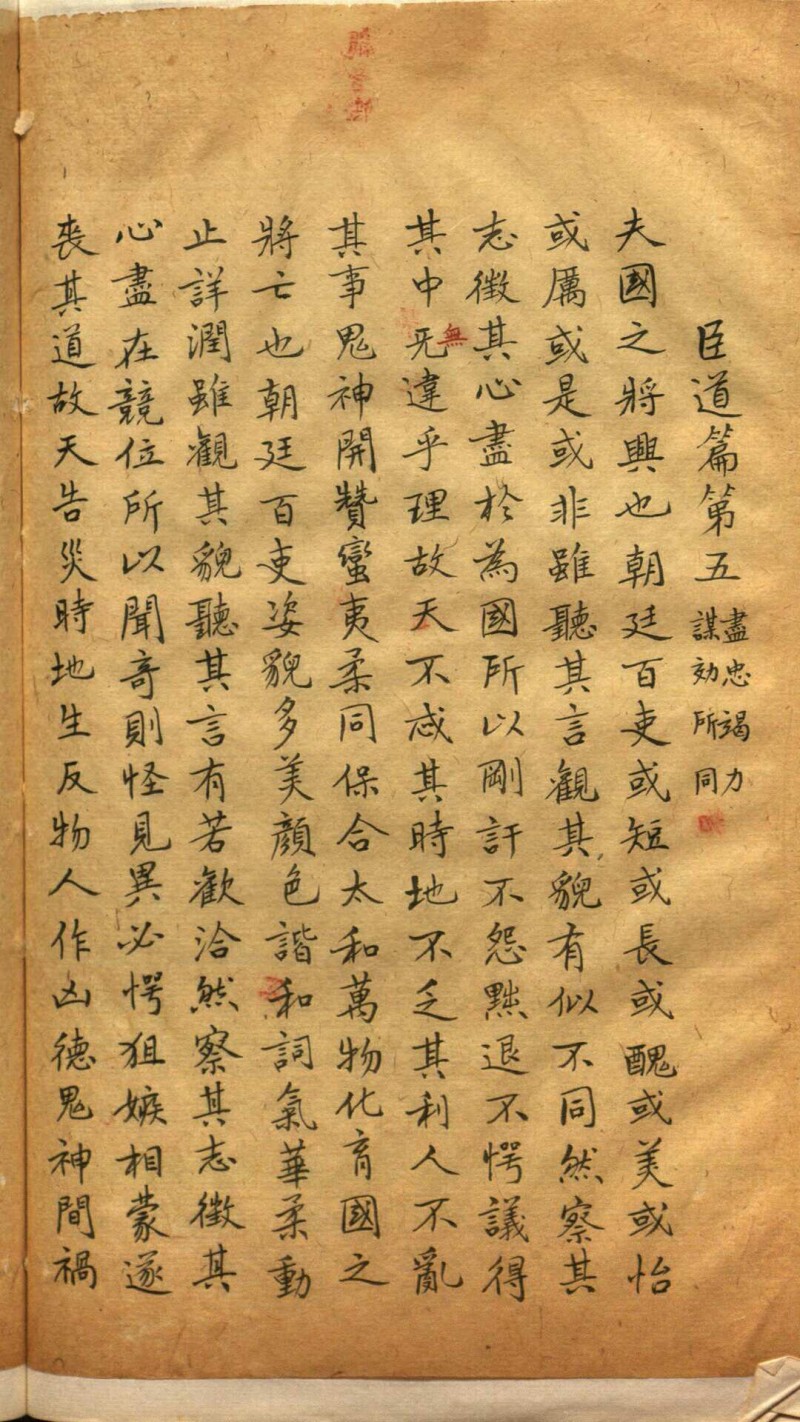 臣道篇第五 盡忠竭力謀効所同
夫國之將興也朝廷百吏或短或長或醜或美或怡
或厲或是或非雖聽其言觀其貌有似不同然察其
志徵其心盡於為國所以剛訐不怨黜退不愕議得
其中旡無違乎理故天不忒其時地不乏其利人不亂
其事鬼神開贊蠻夷柔同保合太和萬物化育國之
將亡也朝廷百吏姿貌多美顏色諧和詞氣華柔動
止詳潤雖觀其貌聽其言有若歡洽然察其志徵其
心盡在競位所以聞奇則怪見異必愕狙嫉相蒙遂
喪其道故天告災時地生反物人作凶德鬼神間禍